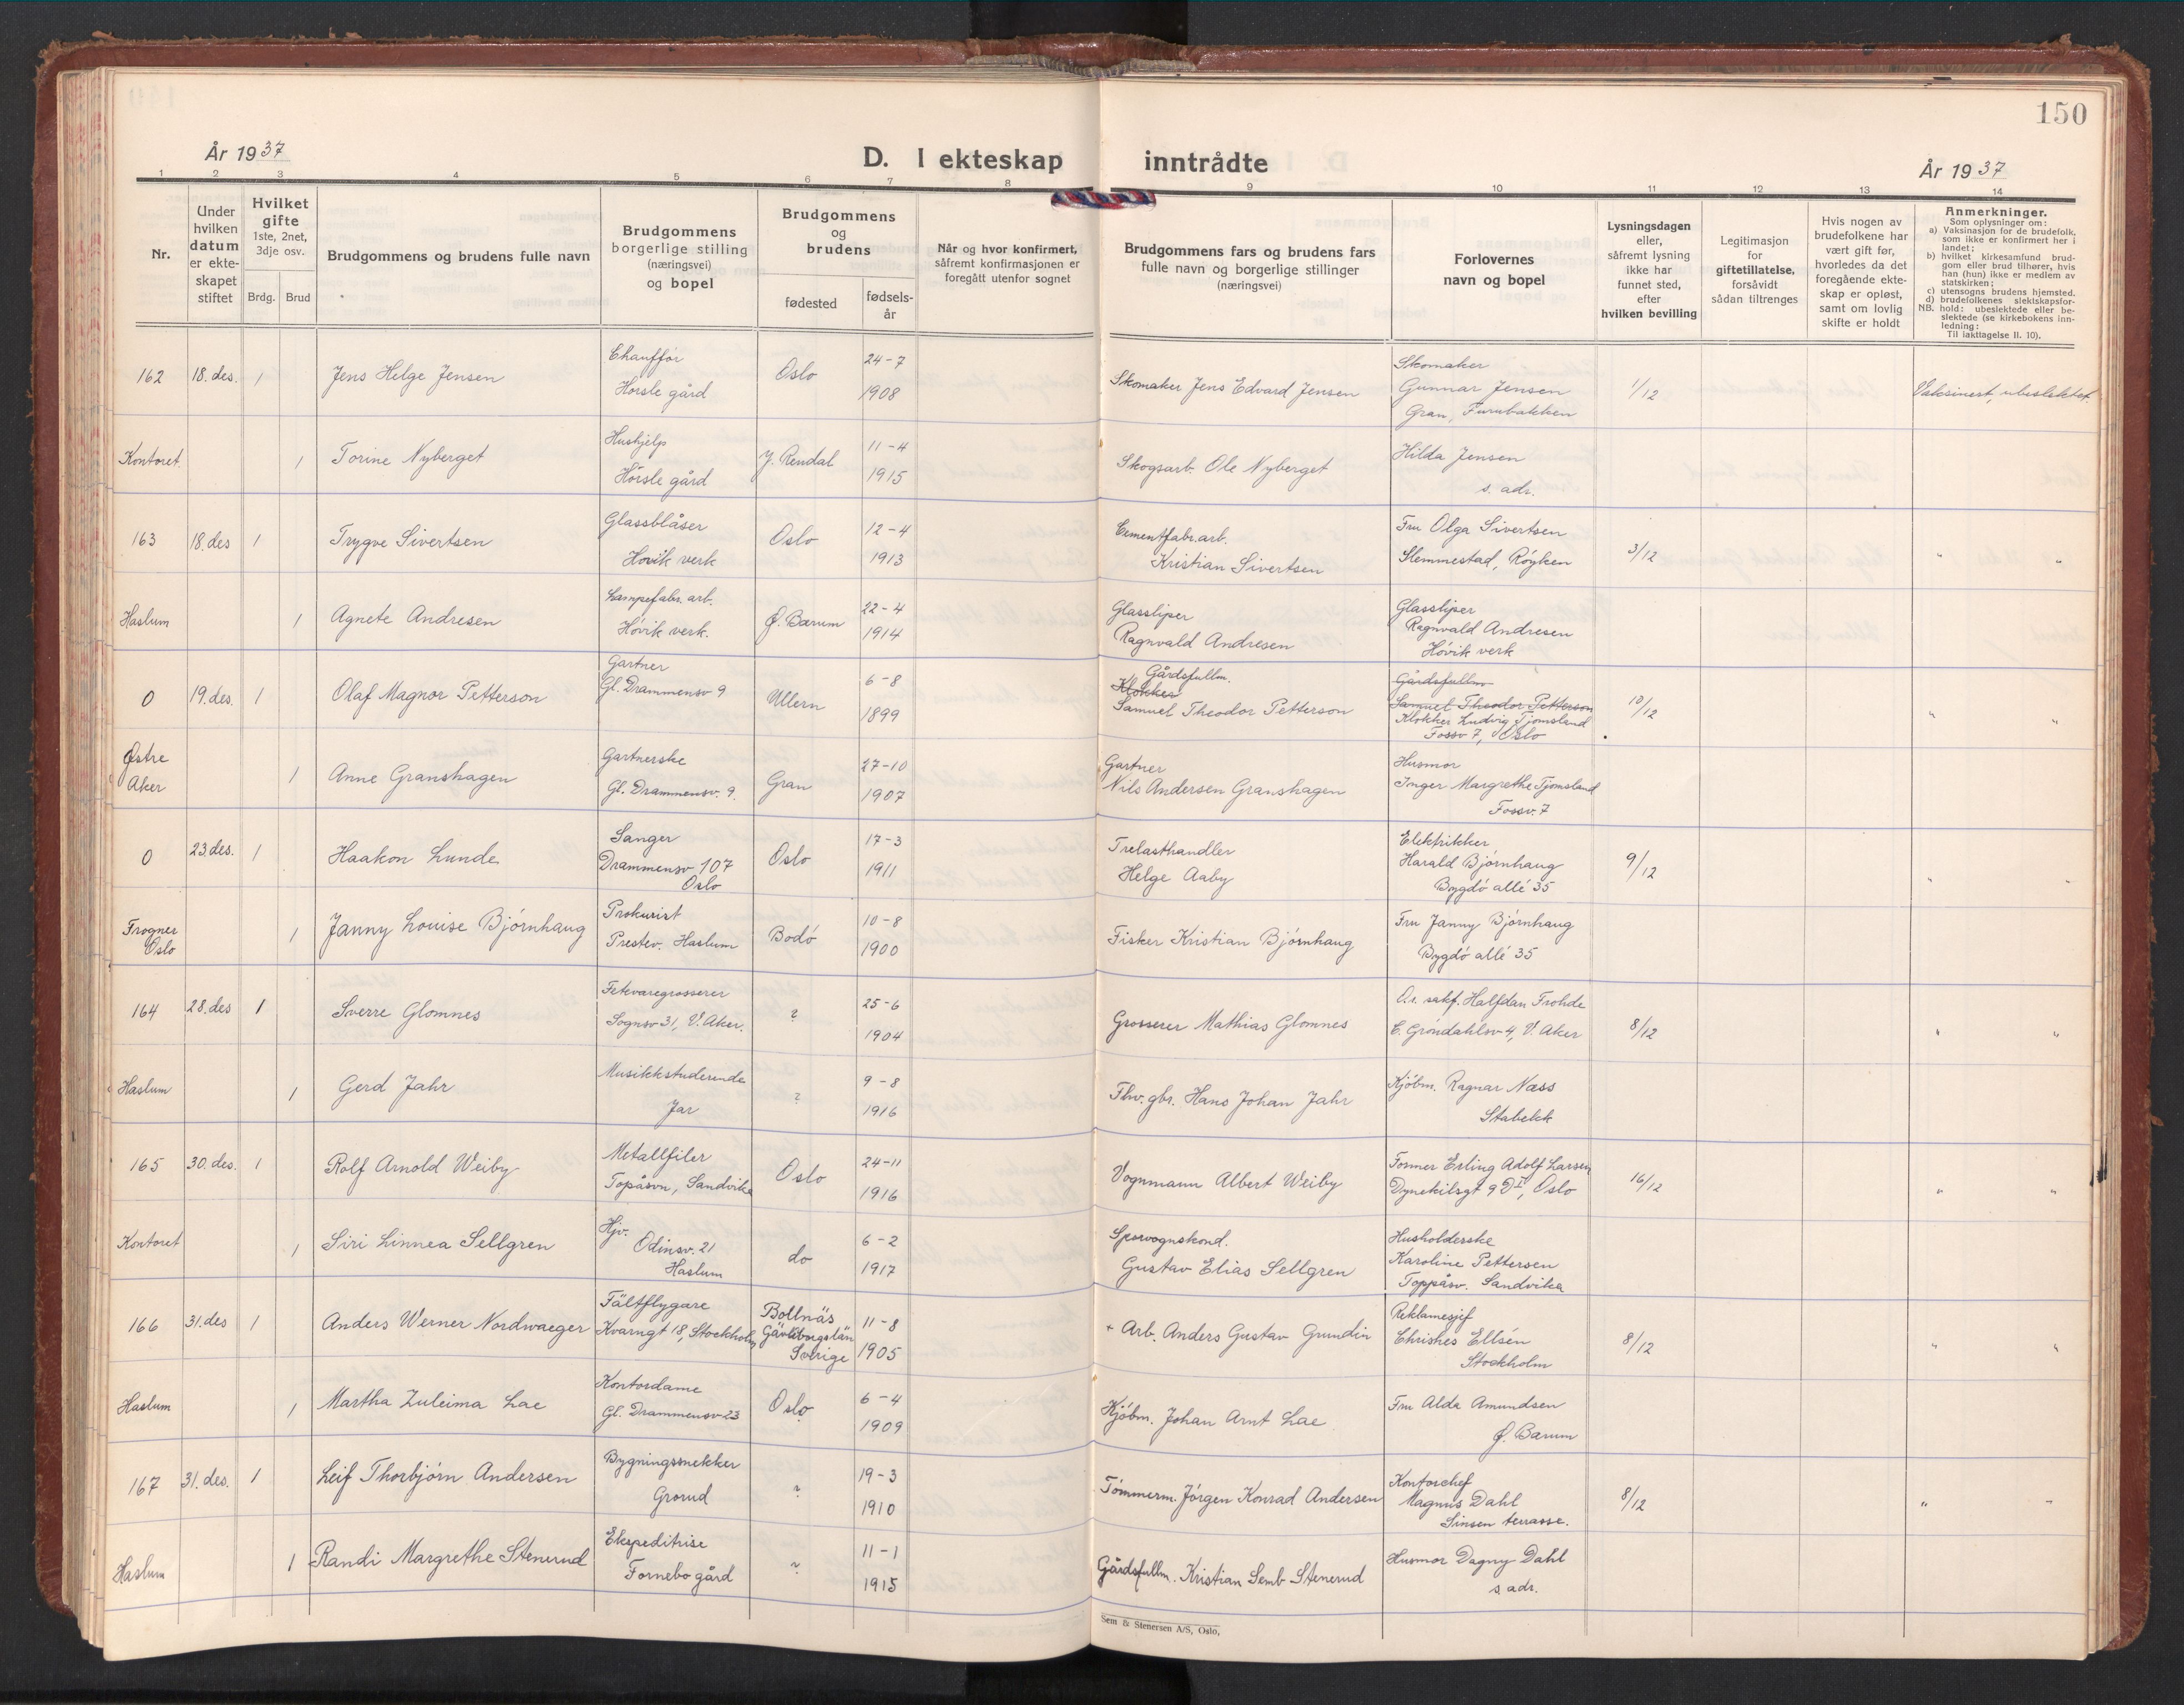 150
År 1937
D. I ekteskap inntrådte
År 1937
1 2 3 4 5 6 7 8 9 10 11 12 13 14
Nr.
Under hvilken datum er ekteskapet stiftet
Hvilket gifte
1ste, 2net, 3dje osv.
Brdg. Brud
Brudgommens og brudens fulle navn
Brudgommens
borgerlige stilling
(næringsvei)
og bopel
Brudgommens
og
brudens
fødested
fødsels-
år
Når og hvor konfirmert,
såfremt konfirmasjonen er
foregått utenfor sognet
Brudgommens fars og brudens fars
fulle navn og borgerlige stillinger
(næringsvei)
Forlovernes
navn og bopel
Lysningsdagen
eller,
såfremt lysning
ikke har
funnet sted,
efter
hvilken bevilling
Legitimasjon
for
giftetillatelse,
forsåvidt
sådan tiltrenges
Hvis nogen av
brudefolkene har
vært gift før,
hvorledes da det
foregående ekte-
skap er opløst,
samt om lovlig
skifte er holdt
Anmerkninger.
Som oplysninger om:
a) Vaksinasjon for de brudefolk,
som ikke er konfirmert her i
landet;
b) hvilket kirkesamfund brud-
gom eller brud tilhører, hvis
han (hun) ikke er medlem av
statskirken;
c) utensogns brudens hjemsted.
d) brudefolkenes slektskapsfor-
NB. hold: ubeslektede eller be-
slektede (se kirkebokens inn-
ledning:
Til iakttagelse II. 10).
162 18. des. 1 Jens Helge Jensen
Chauffór
Horsle gård
Oslo
24-7
1908
Skomaker Jens Edvard Jensen
Skomaker
Gunnar Jensen
Gran, Furubakken
1/12
Vaksinert, ubeslektet.
Kontoret. 1 Torine Nyberget
Hushjelp
Hórsle gård
Y. Rendal
11-4
1915
Skogsarb. Ole Nyberget
Hilda Jensen
s. adr.
163 18. des 1 Trygve Sivertsen
Glassblåser
Hóvik verk
Oslo
12-4
1913
Cementfabr.arb.
Kristian Sivertsen
Fru Olga Sivertsen
Slemmestad, Róyken
3/12
" "
Haslum 1 Agnete Andresen
Lampefabr. arb.
Hóvik verk.
Ø. Bærum
22-4
1914
Glassliper
Ragnvald Andresen
Glassliper
Ragnvald Andresen
Hóvik verk
0 19. des. 1 Olaf Magnor Petterson
Gartner
Gl. Drammensv 9
Ullern
6-8
1899
Gårdsfullm.
Klokker
Samuel Theodor Petterson
Gårdsfullm
Samuel Theodor Petterson
Klokker Ludvig Tjomsland
Fossv 7, Oslo
10/12
" "
Østre
Aker
1 Anne Granshagen
Gartnerske
Gl. Drammensv. 9.
Gran
27-10
1907
Gartner
Nils Andersen Granshagen
Husmor
Inger Margrethe Tjomsland
Fossv. 7
0 23. des. 1 Haakon Lunde
Sanger
Drammensv 107
Oslo
Oslo
17-3
1911
Trelasthandler
Helge Aaby
Elektrikker
Harald Bjórnhaug
Bygdó allé 35
9/12
" "
Frogner
Oslo
1 Janny Louise Bjórnhaug
Prokurist
Prestev. Haslum
Bodó
10-8
1900
Fisker Kristian Bjórnhaug
Fru Janny Bjórnhaug
Bygdó allé 35
164 28. des 1 Sverre Glomnes
Fetevaregrosserer
Sognsv 31, V. Aker.
?
25-6
1904
Grosserer Mathias Glomnes
O.r. sakf. Halfdan Frohde
C. Gróndahlsv 4, V. Aker
8/12
" "
Haslum 1 Gerd Jahr
Musikkstuderende
Jar
?
9-8
1916
Fhv. gbr. Hans Johan Jahr
Kjóbm. Ragnar Næss
Stabekk
165 30. des. 1 Rolf Arnold Weiby
Metallfiler
Topåsvn, Sandvika
Oslo
24-11
1916
Vognmann Albert Weiby
Former Erling Adolf Larsen
Dynekilsgt 9 D I, Oslo
16/12
" "
Kontoret 1 Siri Linnea Sellgren
Hjv.
Odinsv. 21
Haslum
do
6-2
1917
Sporvognskond.
Gustav Elias Sellgren
Husholderske
Karoline Pettersen
Toppåsv. Sandvika
166 31. des 1 Anders Werner Nordwaeger
Fältflygare
Kvarngt 18, Stockholm
Bollnäs
Gävleborgslän
Sverige
11-8
1905
+ Arb. Anders Gustav Grundin
Reklamesjef
Christies Ellsén
Stockholm
8/12
" "
Haslum 1 Martha Zuleima Lae
Kontordame
Gl. Drammensv 23
Oslo
6-4
1909
Kjóbm. Johan Arnt Lae
Fru Alda Amundsen
Ø. Bærum
167 31. des. 1 Leif Thorbjórn Andersen
Bygningssnekker
Grorud
?
19-3
1910
Tómmerm. Jórgen Konrad Andersen
Kontorchef
Magnus Dahl
Sinsen terrasse.
8/12
" "
Haslum 1 Randi Margrethe Stenerud
Ekspeditrise
Fornebo gård
?
11-1
1915
Gårdsfullm. Kristian Semb Stenerud
Husmor Dagny Dahl
s adr.
Sem & Stenersen A/S, Oslo,